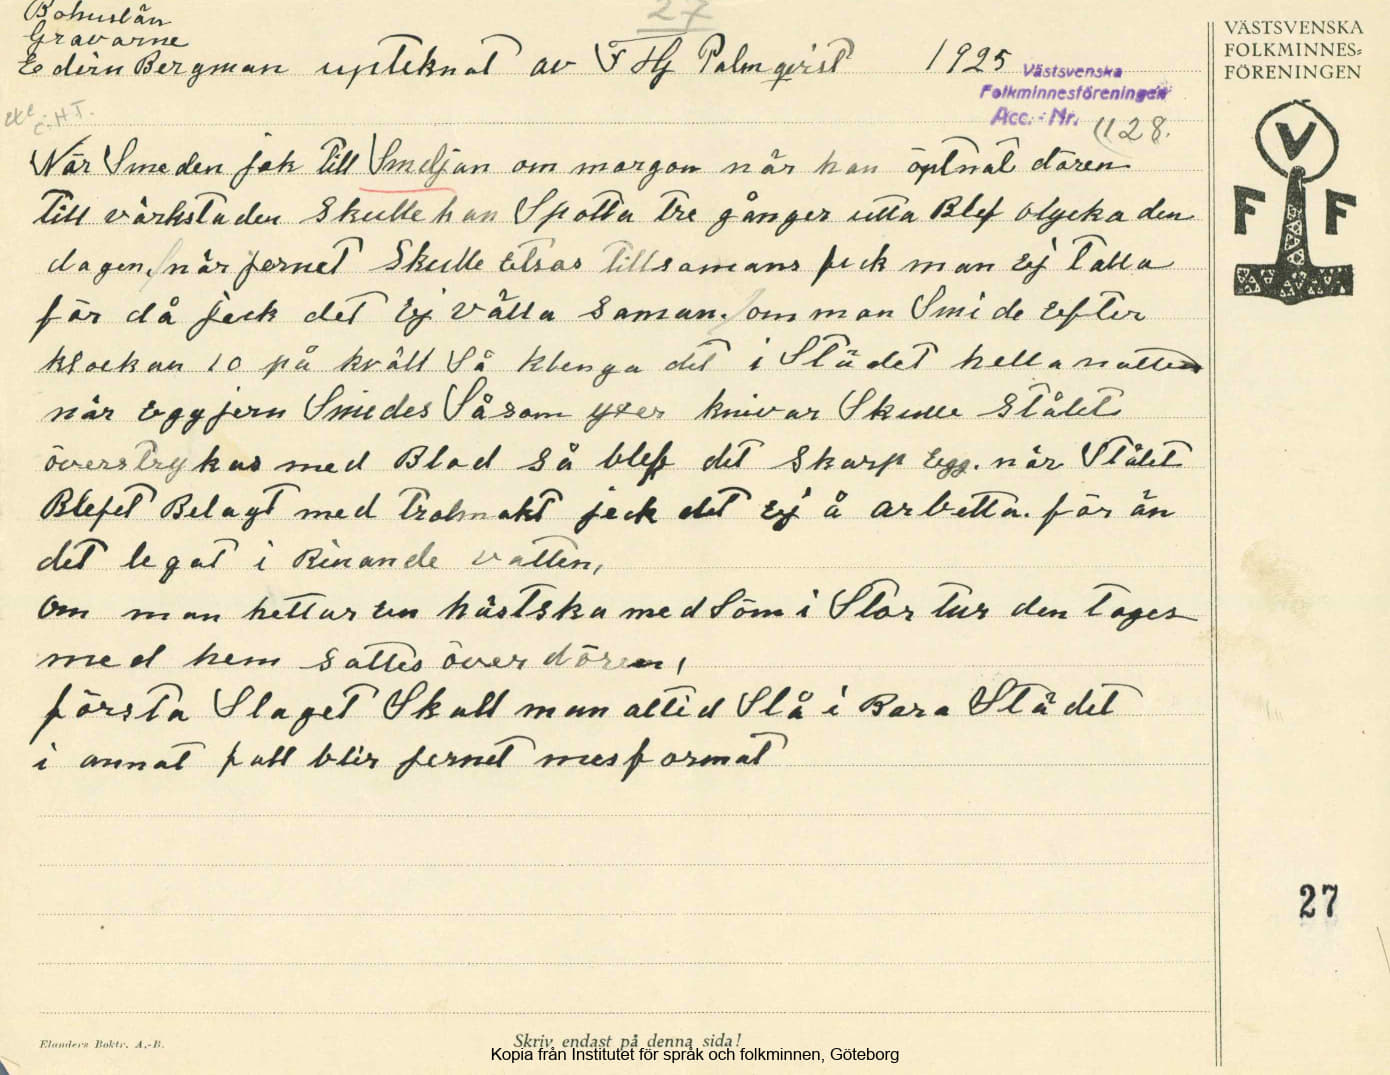 27
Bohuslän
Gravarne
Edvin Bergman upteknat av F Hj Palmqvist 1925
VÄSTSVENSKA
FOLKMINNES=
FÖRENINGEN
Västsvenska
Folkminnesföreningen
Acc. - Nr. 1128.
exc. C.H.T.
När Smeden jek till Smedjan om morgon när han öptnat dören
till värkstaden Skulle han Spotta tre gånger utta Blef olycka den
dagen, när jernet Skulle etsas tillsamans fick man Ej talla
för då jeck det Ej välla saman. om man Smide Efter
klockan 10 på kväll Så klenga det i Städet hella natten
när Eggjern Smides Såsom yxer knivar Skulle Stålet
överstrykas med Blod Så blef det Skarp Egg. när Stålet
Blefet Belagt med trolmakt jeck det Ej å arbetta. för än
det legat i Rinande vatten,
om man hettar en hästsko med Söm i Stor tur den tages
med hem sattes över dören,
första Slaget Skall man alltid Slå i Bara Städet
i annat fall blir jernet mesformat
V
F F
27
Elanders Boktr. A.-B.
Skriv endast på denna sida!
Kopia från Institutet för språk och folkminnen, Göteborg